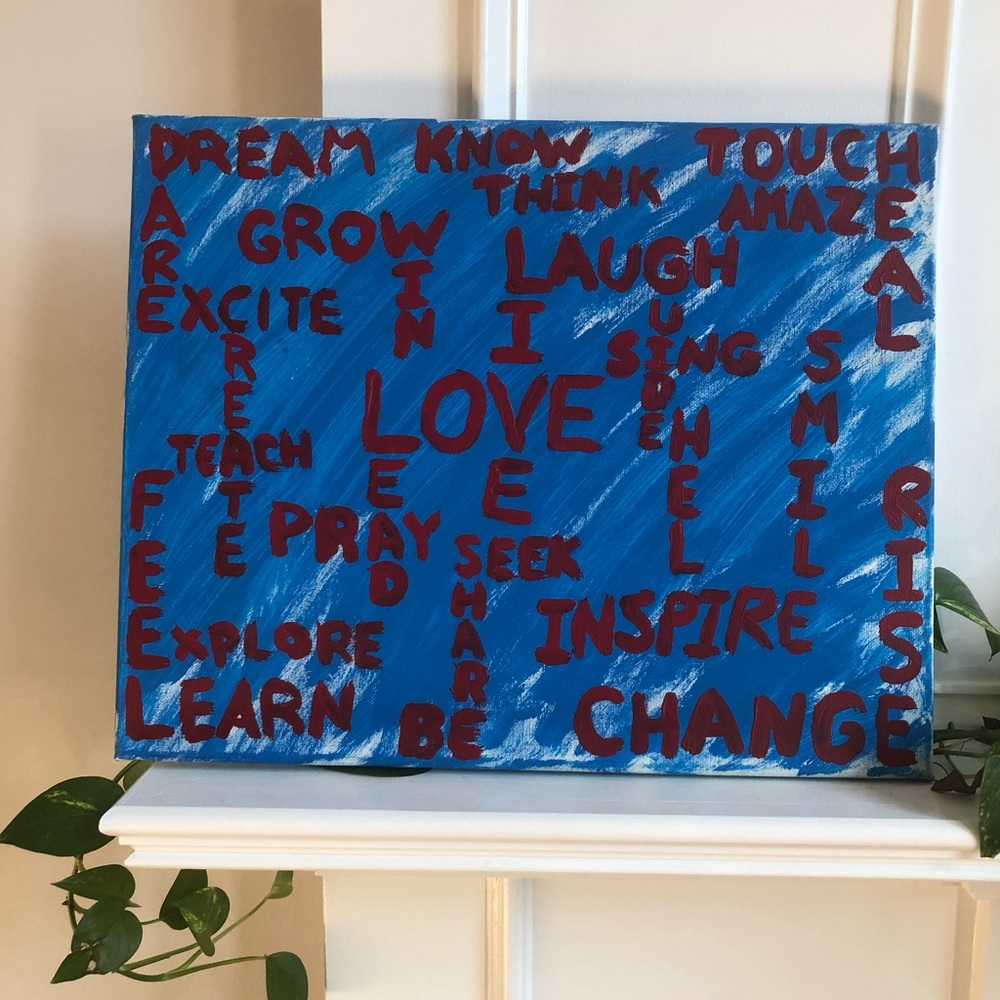 DREAM KNOW TOUCH
THINK AMAZE
GROW LAUGH
EXCITE SING
LOVE
TEACH
PRAY SEEK
EXPLORE INSPIRE
LEARN BE CHANGE
DARE
FEEL
CREATE
LEAD
WIN
SHARE
LIVE
GUIDE
HELP
SMILE
HEAL
RISE